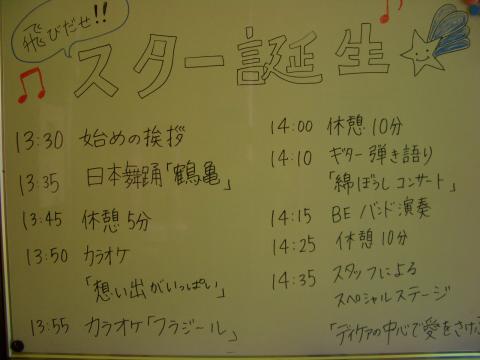 飛びだせ!!
スター誕生
13:30 始めの挨拶
13:35 日本舞踊「鶴亀」
13:45 休憩 5分
13:50 カラオケ
「想い出がいっぱい」
13:55 カラオケ「フラジール」
14:00 休憩 10分
14:10 ギター弾き語り
「綿ぼうし コンサート」
14:15 BEバンド演奏
14:25 休憩 10分
14:35 スタッフによる
スペシャルステージ
「ディケアの中心で愛をさけ